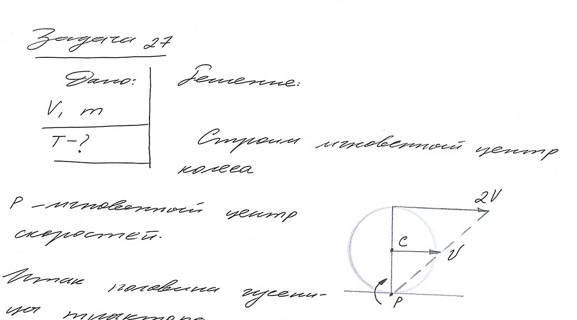 Задача 27
Дано:
V, m
T-?
Решение:
Строим мгновенный центр
колеса
P - мгновенный центр
скоростей.
Итак половина гусени-
цы трактора
2V
C
V
P